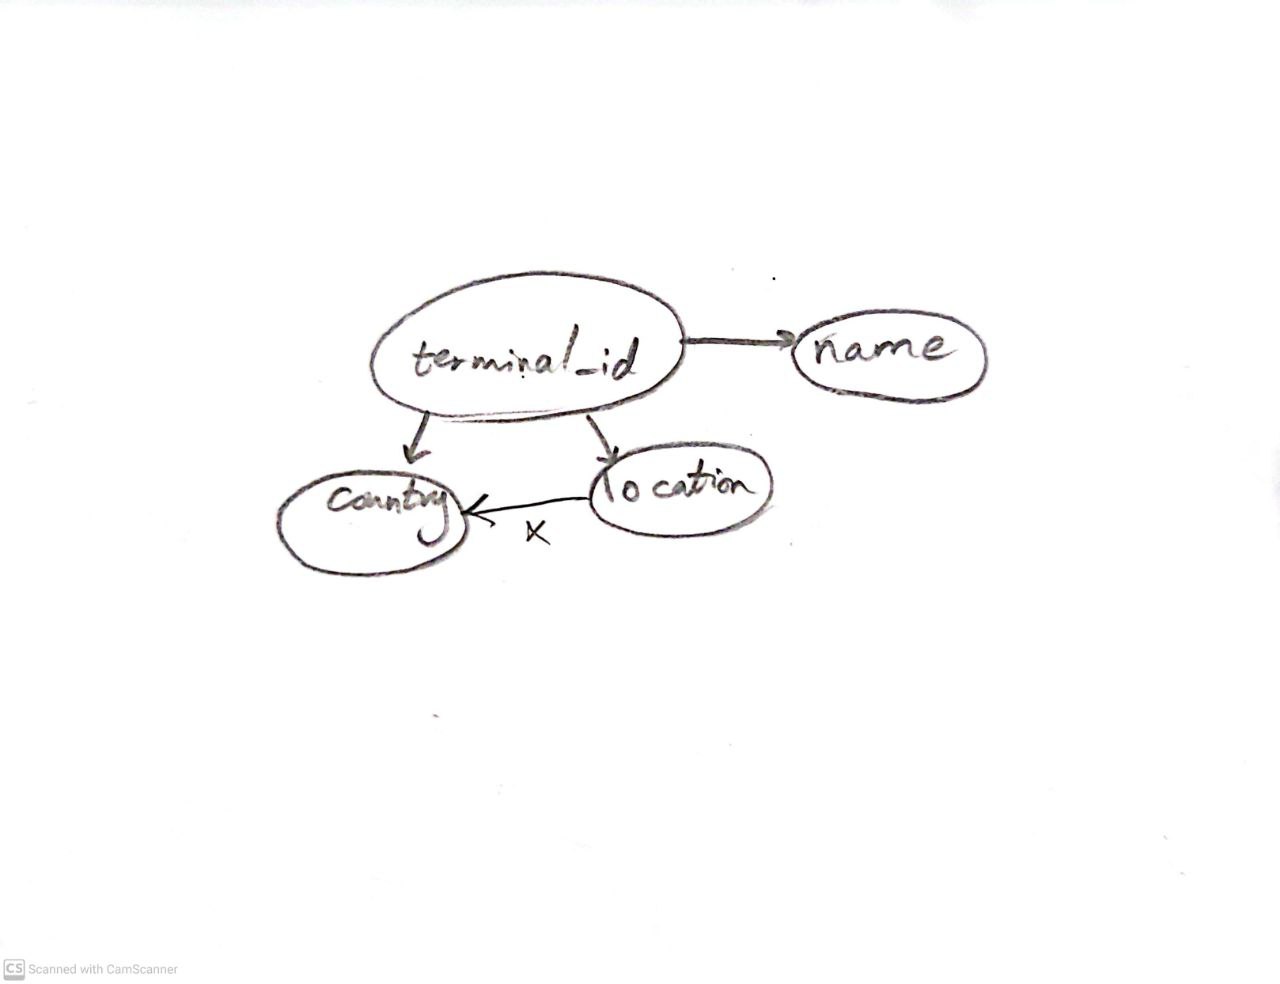 terminal_id
name
country
location
x
CS Scanned with CamScanner